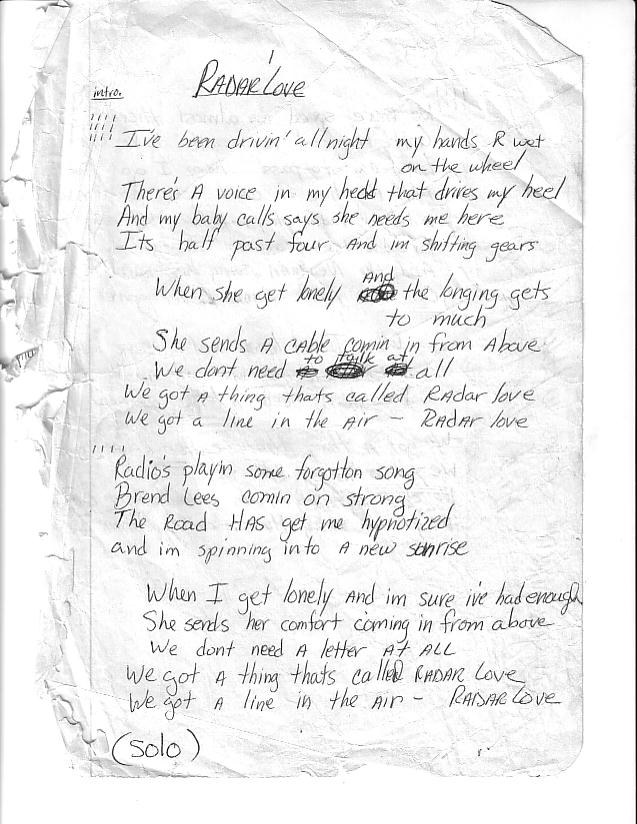 RADAR LOVE
intro.
I've been drivin' all night my hands R wet
on the wheel
There's A voice in my hedd that drives my heel
And my baby calls says she needs me here
Its half past four And im shifting gears
When she get lonely And the longing gets
to much
She sends A cABle comin in from Above
We dont need to talk at all
We got A thing thats called RAdar love
We got a line in the Air - RADAR love
Radio's playin some forgotton song
Brend Lees comin on strong
The Road HAS get me hypnotized
and im spinning into A new sunrise
When I get lonely And im sure ive had enough
She sends her comfort coming in from above
We dont need A letter At ALL
We got A thing thats called RADAR Love
We got A line in the Air - RADAR LOVE
(Solo)